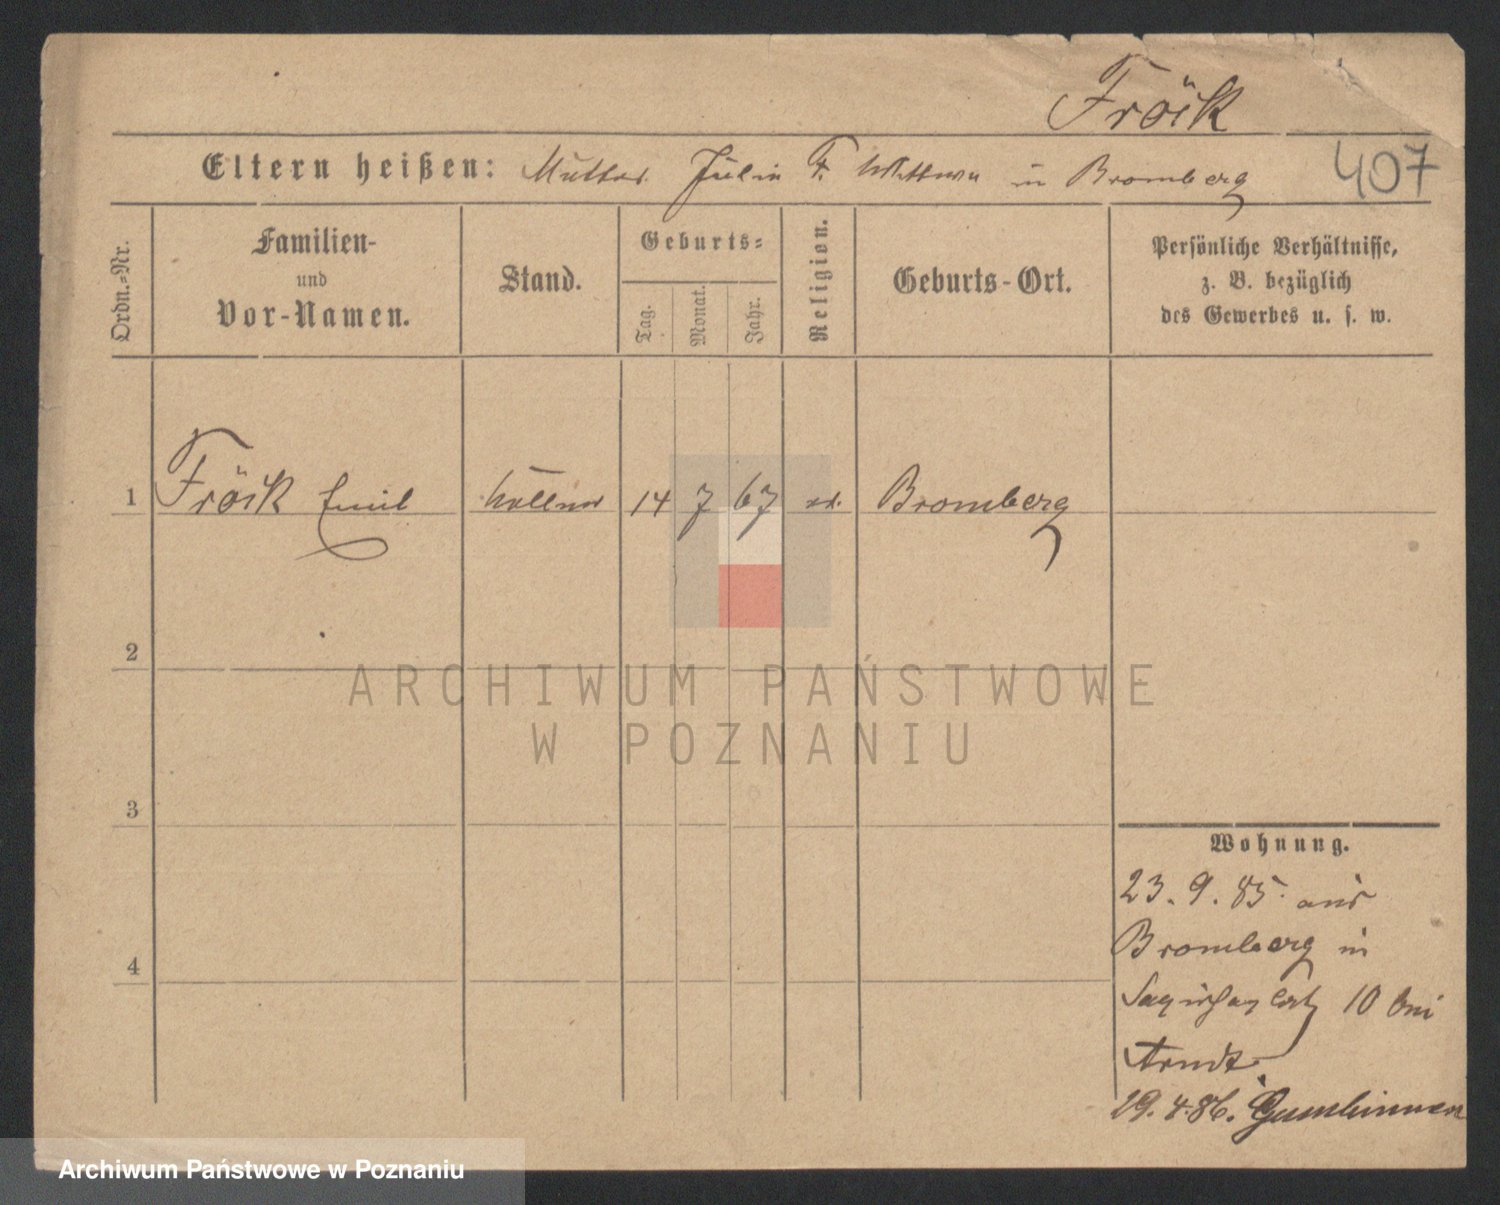 Fröik
Eltern heißen: Mutter Julie F. Wittwe in Bromberg
407
Ordn.-Nr.
Familien-
und
Vor-Namen.
Stand.
Geburts-
Tag.
Monat.
Jahr.
Religion.
Geburts-Ort.
Persönliche Verhältnisse,
z. B. bezüglich
des Gewerbes u. s. w.
1 Fröik Emil Kellner 14 7 67 ev. Bromberg
2
3
4
ARCHIWUM PAŃSTWOWE
W POZNANIU
Wohnung.
23. 9. 85. aus
Bromberg in
10 bei
Arndt.
29. 4. 86. Gumbinnen
Archiwum Państwowe w Poznaniu